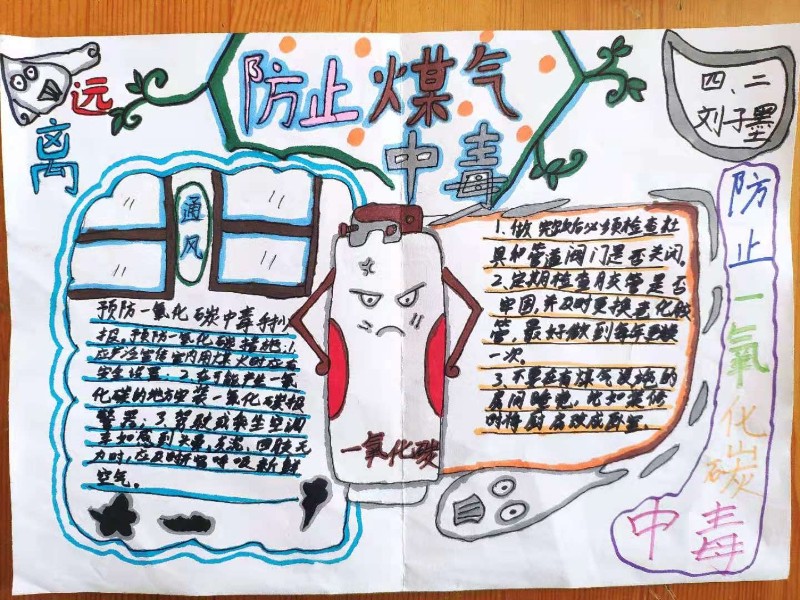 防止煤气
中毒
远
离
四、二
刘子墨
通
风
预防一氧化碳中毒手抄
报。预防一氧化碳措施:1
应严注意在室内用煤火时应有
安全设置。2、在可能产生一氧
化碳的地方安装一氧化碳报
警器。3、驾驶或乘坐空调
车如感到头晕、无力
力时,应及时开窗呼吸新鲜
空气。
一氧化碳
1.做完饭后必须检查灶
具和管道阀门是否关闭。
2.定期检查胶管是否
牢固,并及时更换老化胶
管,最好做到每年更换
一次。
3.不要在有煤气设施的
房间睡电,比如装修
时将厨房改成卧室。
防止一氧化碳
中毒